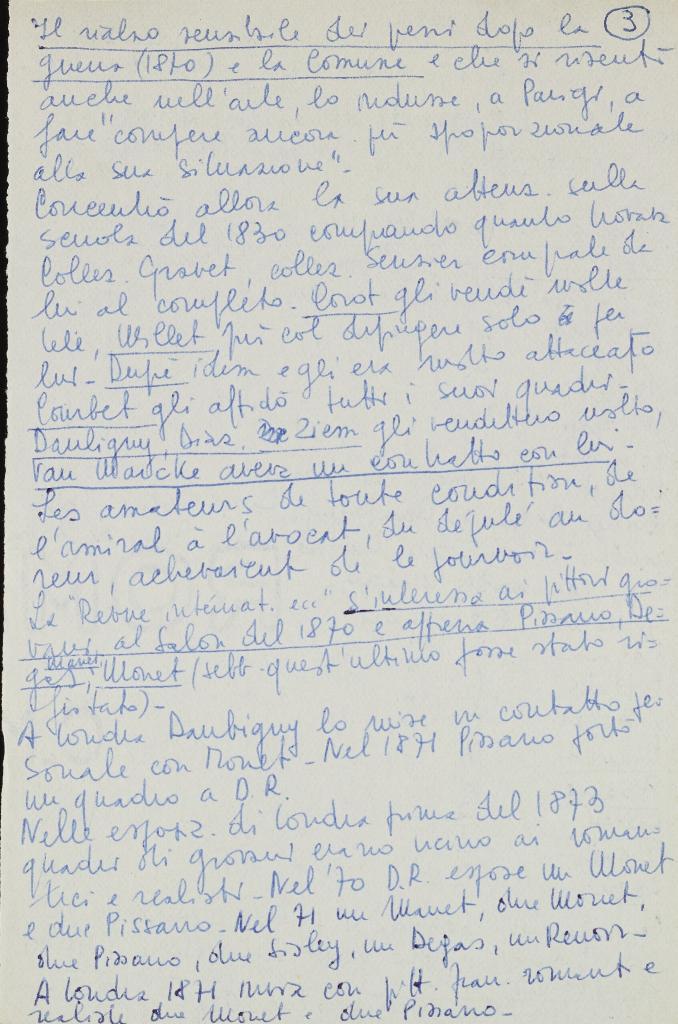 Il rialzo sensibile dei prezzi dopo la 3
guerra (1870) e la Comune e che si risentì
anche nell'arte, lo indusse, a Parigi, a
fare "compere ancora più sproporzionate
alla sua situazione"-
Concentrò allora la sua attenz. sulla
scuola del 1830 comprando quanto trovava
Collez. Gravet, collez. Sensier comprate da
lui al completo. Corot gli vendé molte
tele, Millet più col dipingere solo per
lui- Dupré idem e gli era molto attaccato
Courbet gli affidò tutti i suoi quadri-
Daubigny, Diaz, Ziem gli vendettero molto,
Van Marcke aveva un contratto con lui-
Les amateurs de toute condition, de
l'amiral à l'avocat, du député au do=
reur, achevaient de le pourvoir-
La "Revue internat. ecc" s'interessa ai pittori gio=
vani, al Salon del 1870 e apprezza Pissarro, De=
gas, Manet, Monet (sebb. quest'ultimo fosse stato ri=
fiutato)-
A Londra Daubigny lo mise in contatto per=
sonale con Monet- Nel 1871 Pissarro portò
un quadro a D.R.
Nelle esposiz. di Londra prima del 1873
quadri di giovani erano vicino ai roman=
tici e realisti- Nel '70 D.R. espose un Monet
e due Pissarro- Nel 71 un Manet, due Monet,
due Pissarro, due Sisley, un Degas, un Renoir-
A Londra 1871 invia con pitt. fran. romant e
realiste due Monet e due Pissarro-